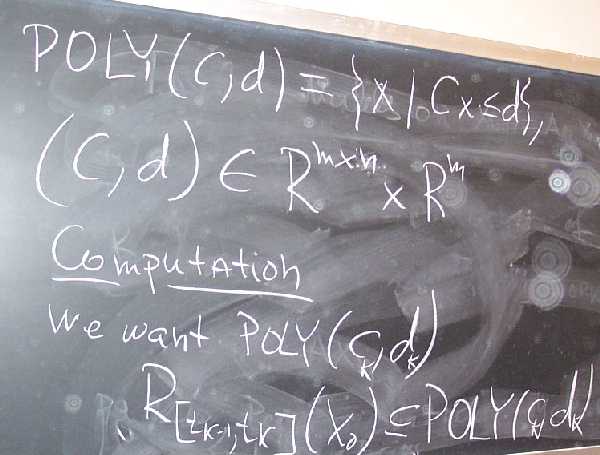 POLY(C,d) = {x | Cx ≤ d},
(C,d) ∈ R^{m×n} × R^m
Computation
We want POLY(C_k,d_k)
R_{[t_{k-1},t_k]}(X_0) ⊆ POLY(C_k,d_k)